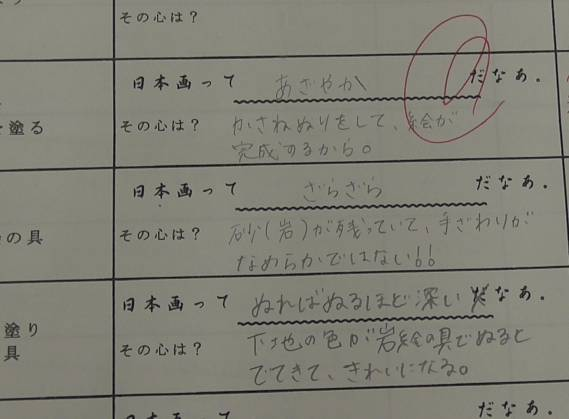 その心は?
日本画って あざやか だなぁ。
塗る
その心は? かさねぬりをして、絵が
完成するから。
日本画って ざらざら だなぁ。
の具
その心は? 砂(岩)が残っていて、手ざわりが
なめらかではない!!
日本画って ぬればぬるほど深い だなぁ。
塗り
具
その心は? 下地の色が岩絵の具でぬると
でてきて、きれいになる。
日本画って だなぁ。